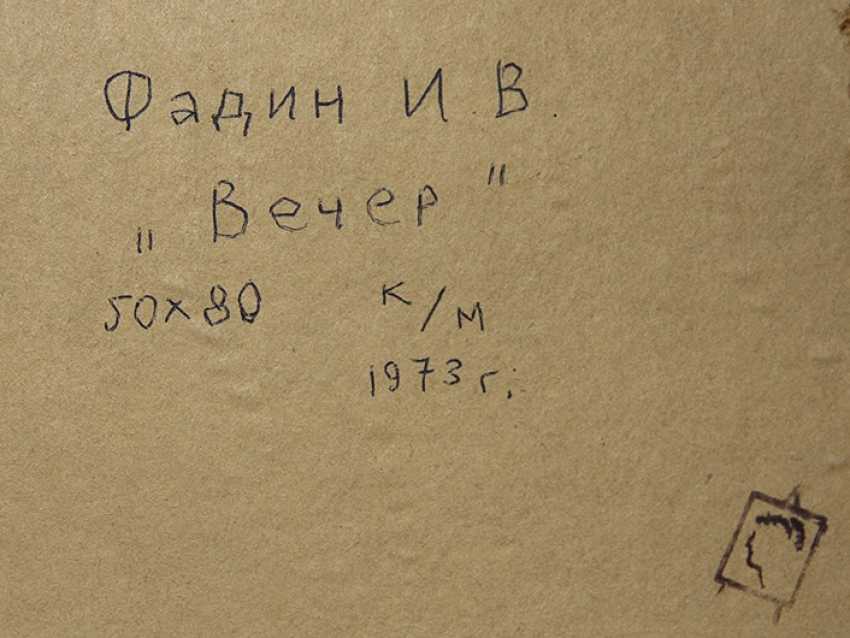 Фадин И.В.
„Вечер"
50х80 к/м
1973 г.